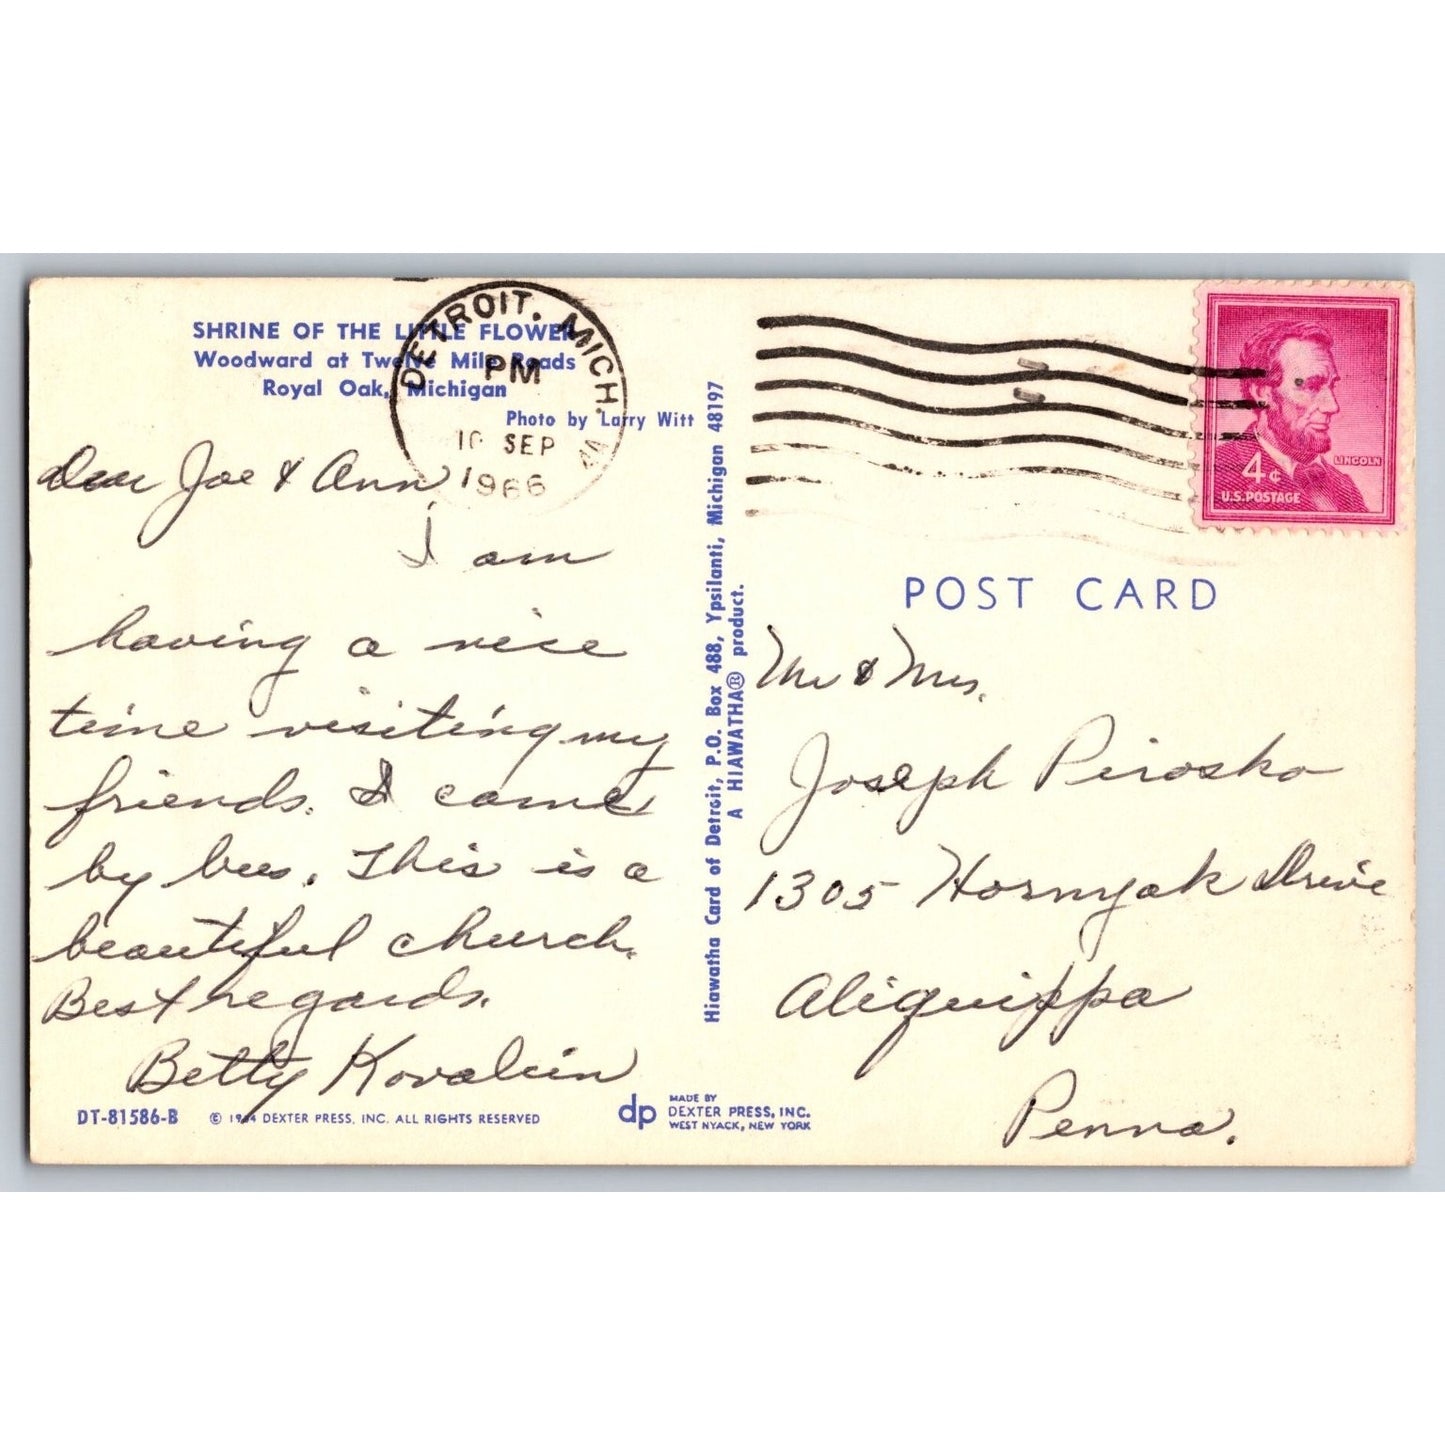 SHRINE OF THE LITTLE FLOWER
Woodward at Twelve Mile Roads
Royal Oak, Michigan
Photo by Larry Witt
DETROIT, MICH.
PM
SEP
1966
Dear Joe & Ann,
I am
having a nice
time visiting my
friends. I came
by bus. This is a
beautiful church.
Best regards.
Betty Kovalein
DT-81586-B
© 1964 DEXTER PRESS, INC. ALL RIGHTS RESERVED
dp
MADE BY
DEXTER PRESS, INC.
WEST NYACK, NEW YORK
Hiawatha Card of Detroit, P.O. Box 488, Ypsilanti, Michigan 48197
A HIAWATHA® product.
LINCOLN
4¢
U.S. POSTAGE
POST CARD
Mr & Mrs.
Joseph Pirosko
1305 Hornyak Drive
Aliquippa
Penna.